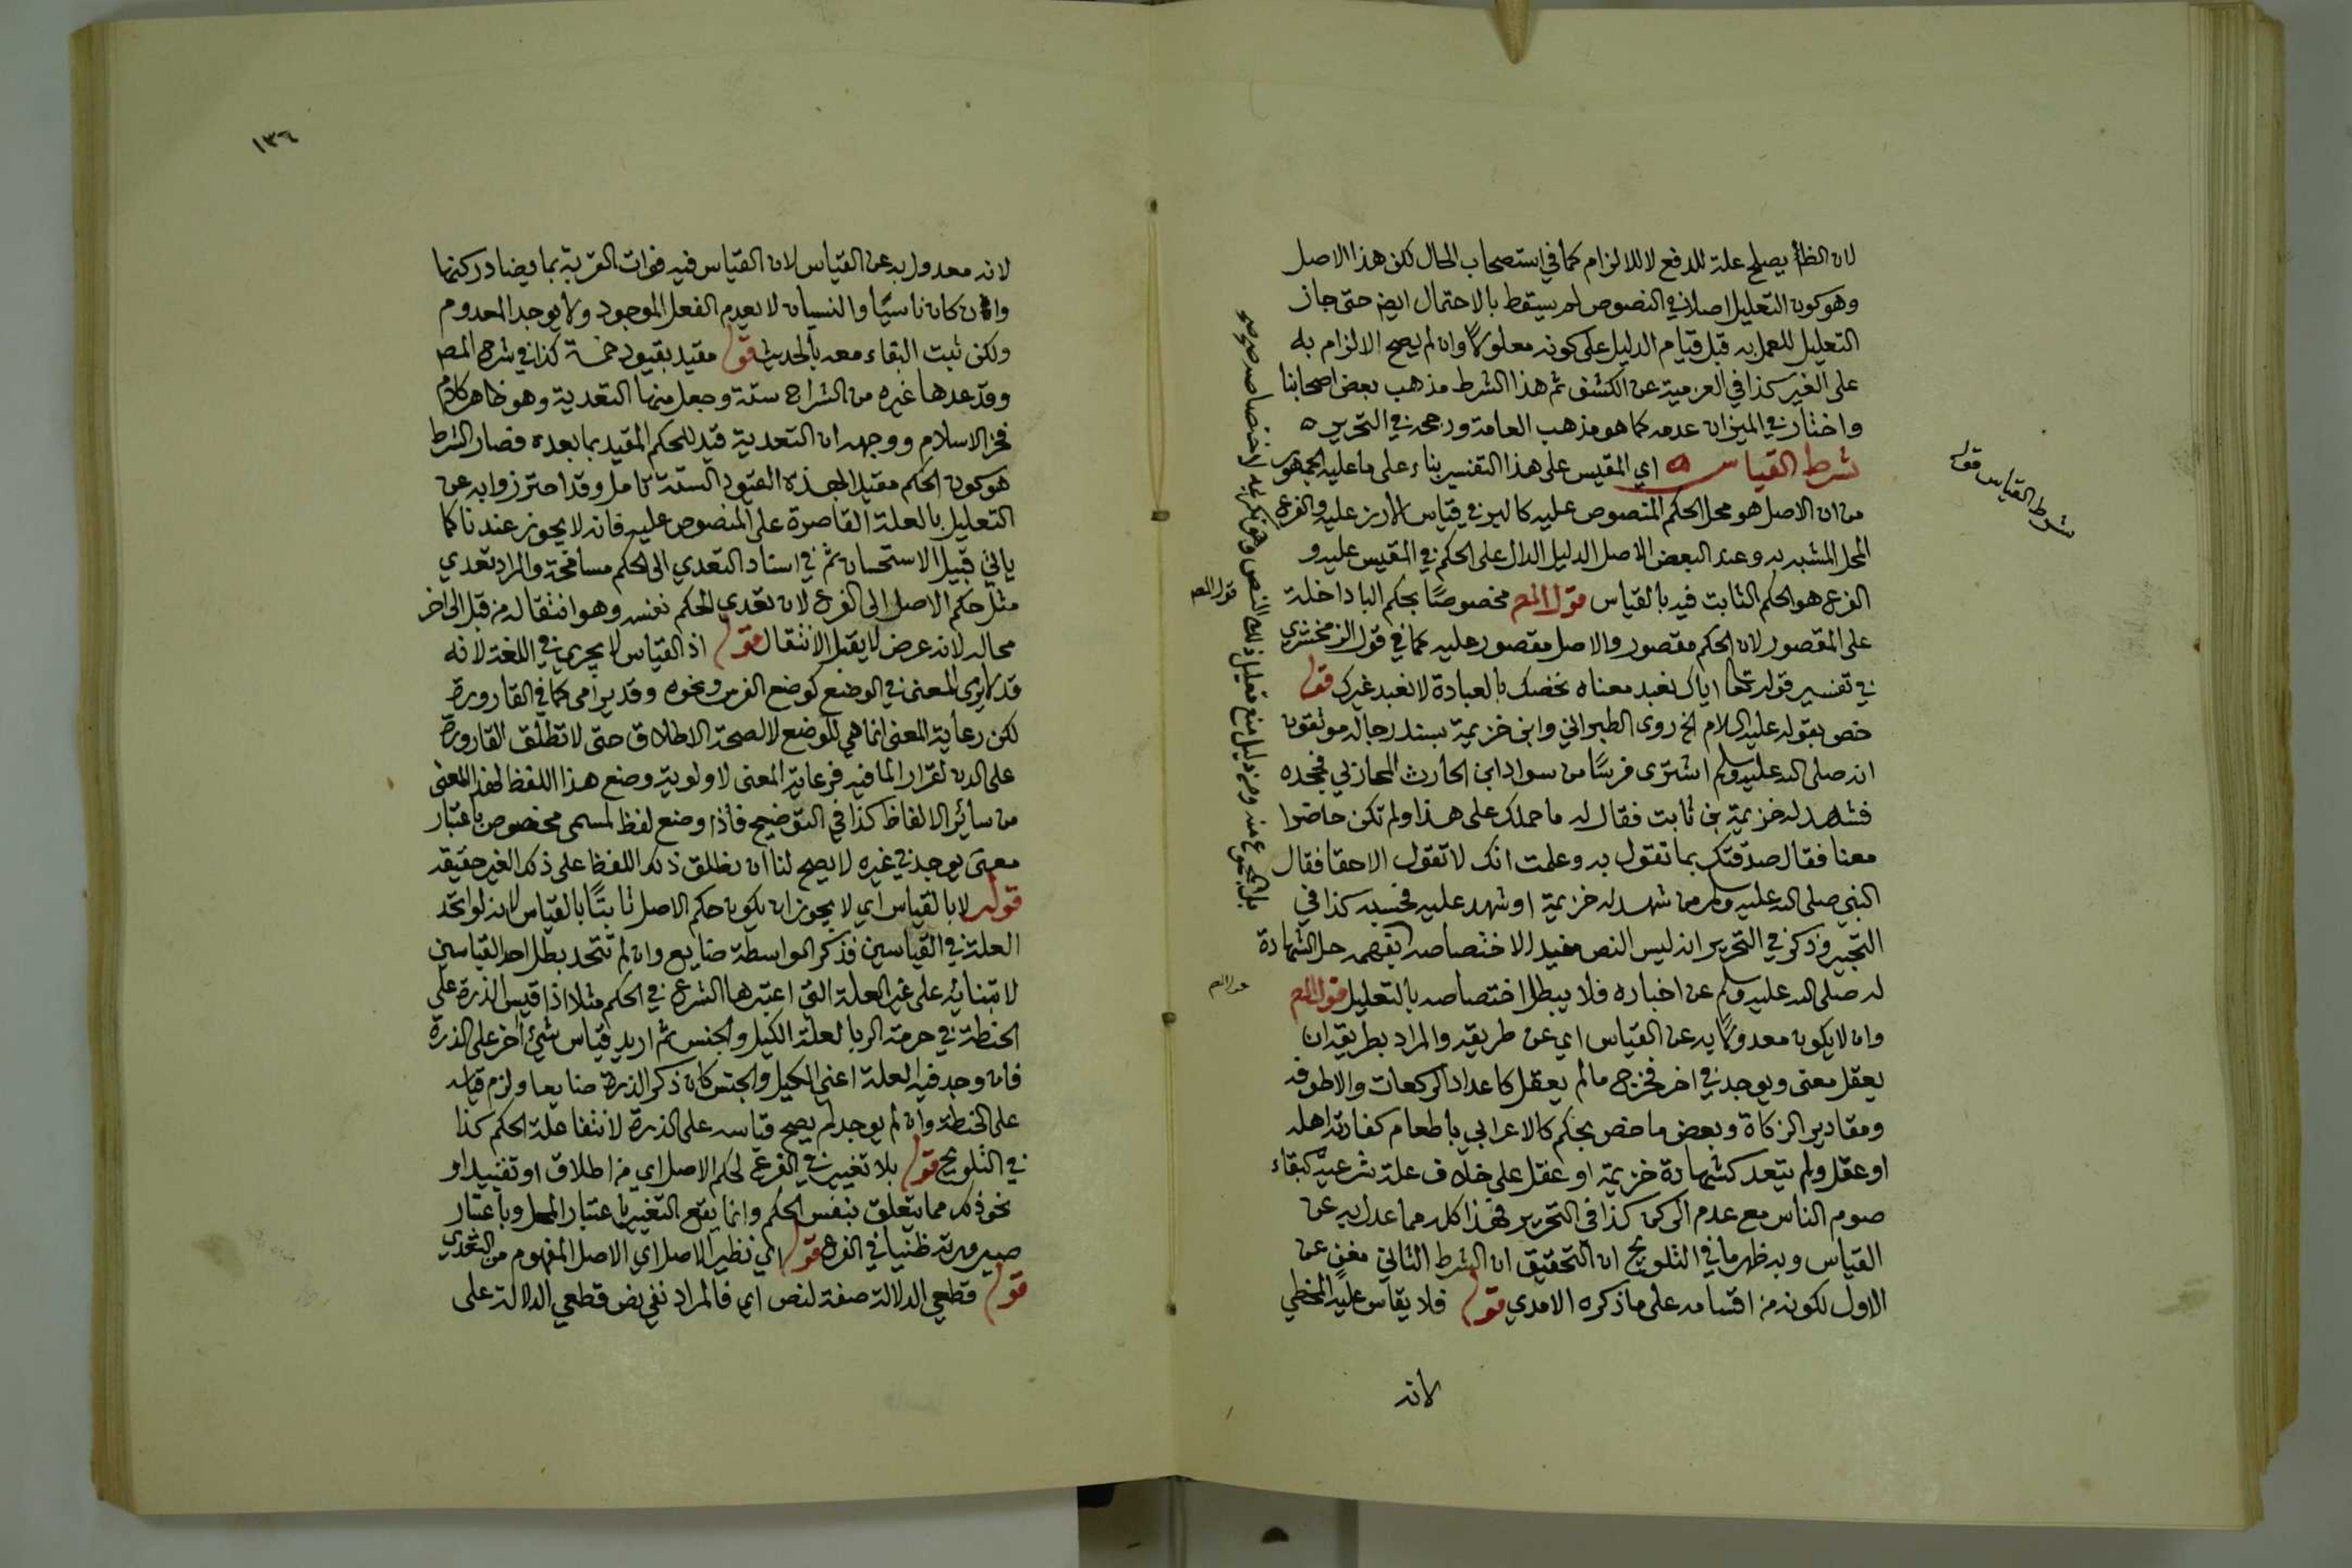 لان الظاهر يصلح علة للدفع لا للالزام كما في استصحاب الحال لكن هذا الاصل
وهو كون التعليل اصلا في النصوص لم يسقط بالاحتمال ايضا حتى جاز
التعليل للعمل به قبل قيام الدليل على كونه معلولا وان لم يصح الالزام به
على الغير كذا في العزمية عن الكشف ثم هذا الشرط مذهب بعض اصحابنا
واختار في الميزان عدمه كما هو مذهب العامة ورجحه في التحرير ه
شرط القياس ه اي المقيس على هذا التفسير بناء على ما عليه الجمهور
من ان الاصل هو محل الحكم المنصوص عليه كالبر في قياس الارز عليه والفرع
المحل المشبه به وعند البعض الاصل الدليل الدال على الحكم في المقيس عليه و
الفرع هو الحكم الثابت فيه بالقياس قول المص مخصوصا بحكم الباء داخلة
على المقصور لان الحكم مقصور والاصل مقصور عليه كما في قول الزمخشري
في تفسير قوله تعالى اياك نعبد معناه نخصك بالعبادة لا نعبد غيرك قوله
خص بقوله عليه السلام الخ روى الطبراني وابن خزيمة بسند رجاله موثقون
انه صلى الله عليه وسلم اشترى فرسا من سواد ابن الحارث المحاربي فجحده
فشهد له خزيمة بن ثابت فقال له ما حملك على هذا ولم تكن حاضرا
معنا فقال صدقتك بما تقول به وعلمت انك لا تقول الا حقا فقال
النبي صلى الله عليه وسلم من شهد له خزيمة او شهد عليه فحسبه كذا في
التحبير وذكر في التحرير انه ليس النص مفيد الاختصاصه بفهمه حل الشهادة
له صلى الله عليه وسلم عن اخباره فلا يبطل اختصاصه بالتعليل قول المص
وان لا يكون معدولا به عن القياس اي عن طريقه والمراد بطريقه ان
يعقل معنى ويوجد في اخر فخرج ما لم يعقل كاعداد الركعات والاطوفه
ومقادير الزكاة وبعض ما خص بحكم كالاعرابي باطعام كفارته اهله
او عقل ولم يتعد كشهادة خزيمة او عقل على خلاف علة شرعية كبقاء
صوم الناس مع عدم الركن كذا في التحرير فهذا كله مما عدل به عن
القياس وبه ظهر ما في التلويح ان التحقيق ان الشرط الثاني مغن عن
الاول لكونه من اقسامه على ما ذكره الامدي قوله فلا يقاس عليه المخطي
لانه
شرط القياس قوله
قول المص
قول المص
١٣٦
لانه معدول به عن القياس لان القياس فيه فوات القربة بما يضاد ركنها
وان كان ناسيا والنسيان لا يعدم الفعل الموجود ولا يوجد المعدوم
ولكن ثبت البقاء معه بالحديث قوله مقيد بقيود خمسة كذا في شرح المص
وقد عدها غيره من الشراح ستة وجعل منها التعدية وهو ظاهر كلام
فخر الاسلام ووجهه ان التعدية قيد للحكم المقيد بما بعده فصار الشرط
هو كون الحكم مقيدا بهذه القيود الستة تامل وقد احترزوا به عن
التعليل بالعلة القاصرة على المنصوص عليه فانه لا يجوز عندنا كما
ياتي قبيل الاستحسان ثم في اسناد التعدي الى الحكم مسامحة والمراد تعدي
مثل حكم الاصل الى الفرع لان تعدي الحكم نفسه وهو انتقاله من قبل الى اخر
محال لانه عرض لا يقبل الانتقال قوله اذ القياس لا يجري في اللغة لانه
قد لا يرى المعنى في الوضع كوضع الفرس ونحوه وقد يراعى كما في القارورة
لكن رعاية المعنى انما هي للوضع لا لصحة الاطلاق حتى لا تطلق القارورة
على الدن لقرار الما فيه فرعاية المعنى لاولوية وضع هذا اللفظ لهذا المعنى
من سائر الالفاظ كذا في التوضيح فاذا وضع لفظ لمسمى مخصوص باعتبار
معنى يوجد في غيره لا يصح لنا ان نطلق ذلك اللفظ على ذلك الغير حقيقة
قوله لا بالقياس اي لا يجوز ان يكون حكم الاصل ثابتا بالقياس لانه لو اتحد
العلة في القياسين فذكر الواسطة ضايع وان لم تتحد بطل احد القياسين
لابتنائه على غير العلة التي اعتبرها الشرع في الحكم مثلا اذا قيس الذرة على
الحنطة في حرمة الربا لعلة الكيل والجنس ثم اريد قياس شيء اخر على الذرة
فان وجد فيه العلة اعني الكيل والجنس كان ذكر الذرة ضايعا ولزم قياسه
على الحنطة وان لم يوجد لم يصح قياسه على الذرة لانتفا علة الحكم كذا
في التلويح قوله بلا تغيير في الفرع لحكم الاصل اي من اطلاق او تقييد او
نحو ذلك مما يتعلق بنفس الحكم وانما يقع التغيير باعتبار المحل وباعتبار
صيرورته ظنيا في الفرع قوله الى نظير الاصل اي الاصل المفهوم من التعدي
قوله قطعي الدلالة صفة لنص اي فالمراد نفي نص قطعي الدلالة على